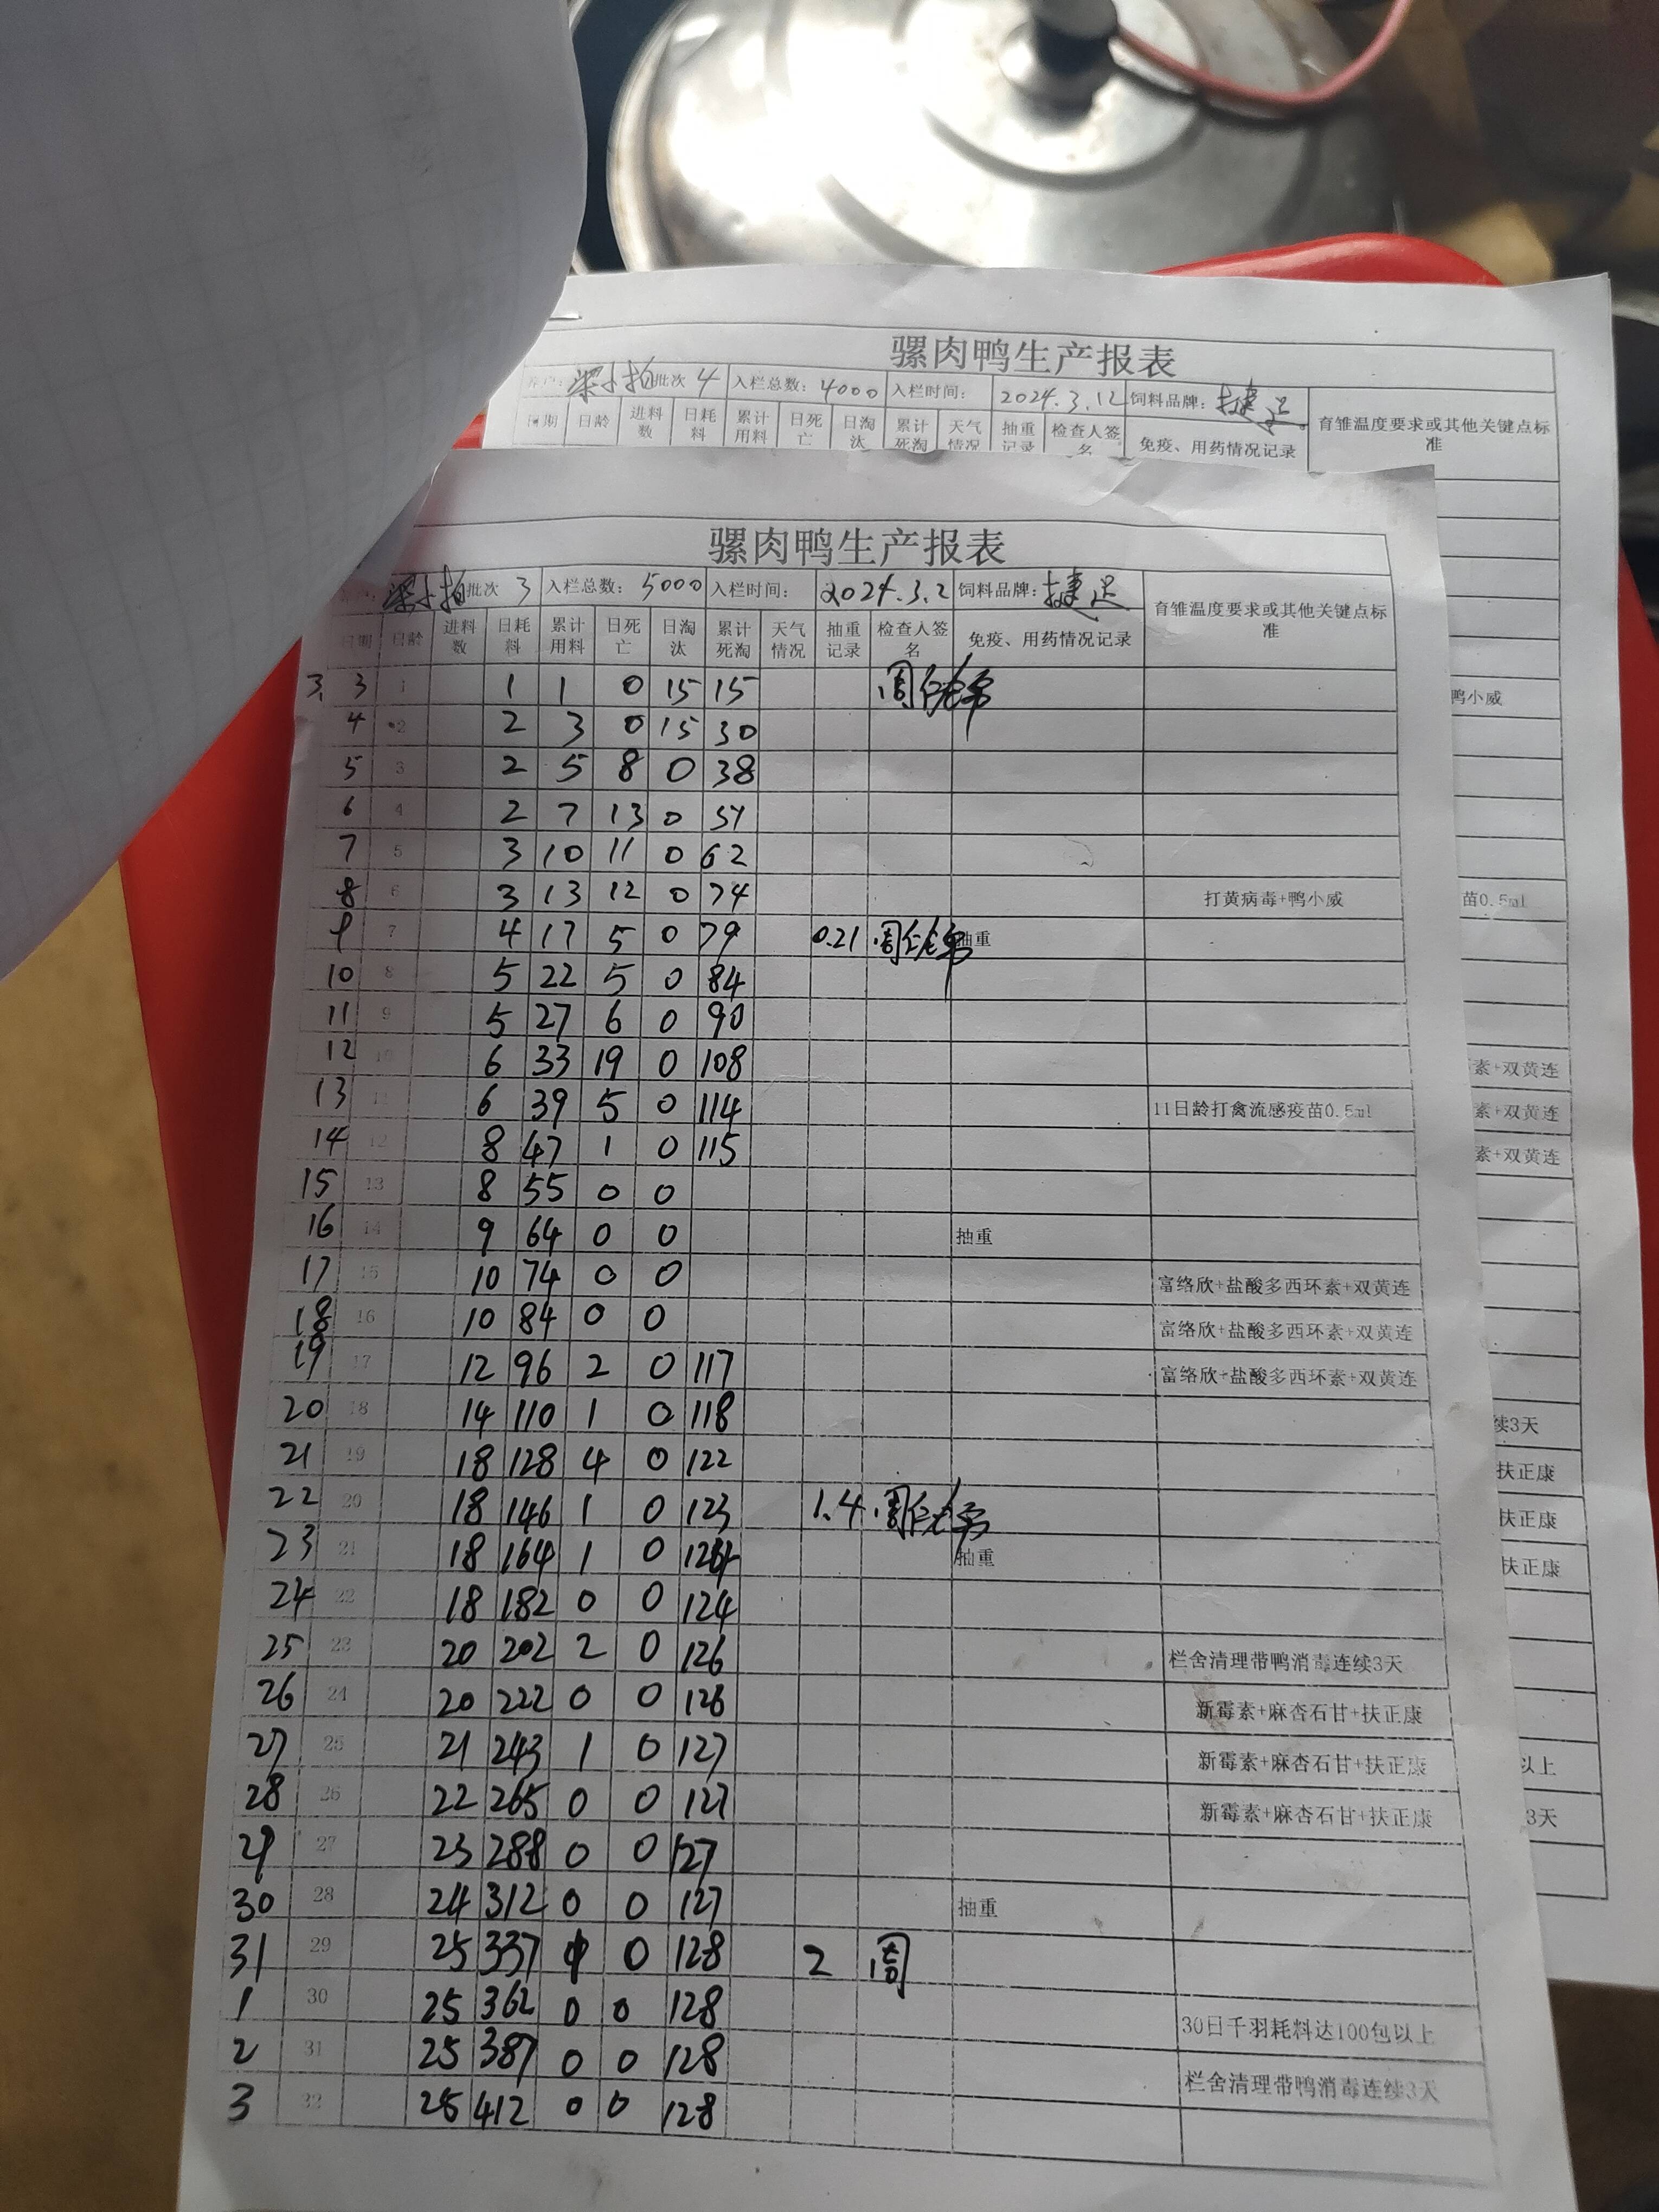 骡肉鸭生产报表
批次 4 入栏总数: 4000 入栏时间: 2024.3.12 饲料品牌: 捷足
日期 日龄 进料数 日耗料 累计用料 日死亡 日淘汰 累计死淘 天气情况 抽重记录 检查人签名 免疫、用药情况记录 育雏温度要求或其他关键点标准
骡肉鸭生产报表
批次 3 入栏总数: 5000 入栏时间: 2024.3.2 饲料品牌: 捷足
日期 日龄 进料数 日耗料 累计用料 日死亡 日淘汰 累计死淘 天气情况 抽重记录 检查人签名 免疫、用药情况记录 育雏温度要求或其他关键点标准
3. 3 1 1 1 0 15 15 周
鸭小威
4 2 2 3 0 15 30
5 3 2 5 8 0 38
6 4 2 7 13 0 51
7 5 3 10 11 0 62
8 6 3 13 12 0 74 打黄病毒+鸭小威
苗0.5ml
9 7 4 17 5 0 79 0.21 周 抽重
10 8 5 22 5 0 84
11 9 5 27 6 0 90
12 10 6 33 19 0 108
素+双黄连
13 11 6 39 5 0 114 11日龄打禽流感疫苗0.5ml
素+双黄连
14 12 8 47 1 0 115
素+双黄连
15 13 8 55 0 0
16 14 9 64 0 0 抽重
17 15 10 74 0 0 富络欣+盐酸多西环素+双黄连
18 16 10 84 0 0 富络欣+盐酸多西环素+双黄连
19 17 12 96 2 0 117 富络欣+盐酸多西环素+双黄连
20 18 14 110 1 0 118
续3天
21 19 18 128 4 0 122
扶正康
22 20 18 146 1 0 123 1.4 周
扶正康
23 21 18 164 1 0 124 抽重
扶正康
24 22 18 182 0 0 124
25 23 20 202 2 0 126 栏舍清理带鸭消毒连续3天
26 24 20 222 0 0 126 新霉素+麻杏石甘+扶正康
27 25 21 243 1 0 127 新霉素+麻杏石甘+扶正康
以上
28 26 22 265 0 0 127 新霉素+麻杏石甘+扶正康
3天
29 27 23 288 0 0 127
30 28 24 312 0 0 127 抽重
31 29 25 337 0 128 2 周
1 30 25 362 0 0 128 30日千羽耗料达100包以上
2 31 25 387 0 0 128 栏舍清理带鸭消毒连续3天
3 32 25 412 0 0 128